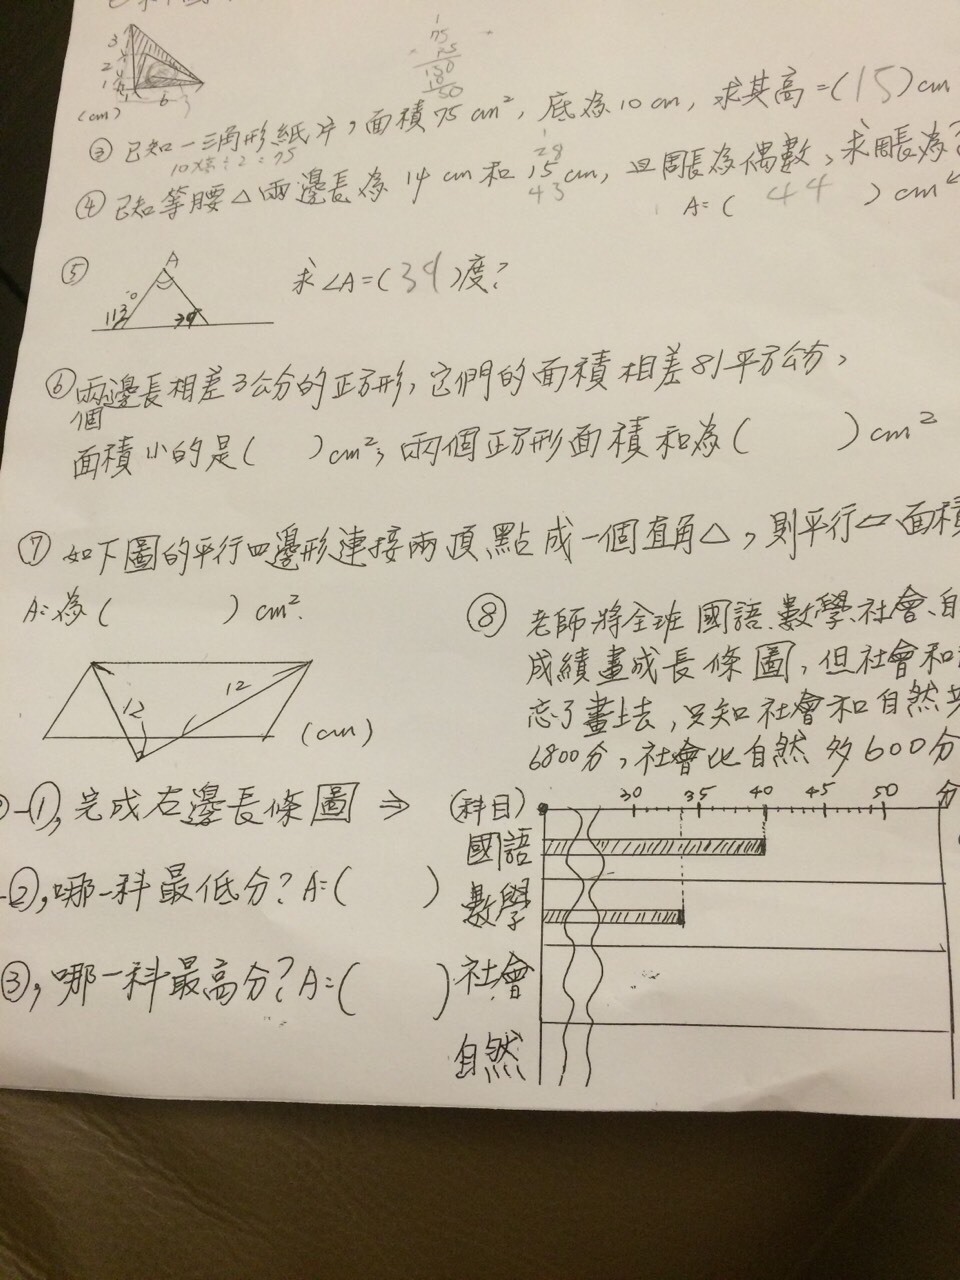 3
2
1
6
(cm)
1
75
75
150
150
③ 已知一三角形紙片，面積75cm²，底為10cm，求其高=(15)cm
10×高÷2=75
④ 已知等腰△兩邊長為14cm和15cm，且周長為偶數，求周長為?
28
43
A=( 44 )cm
⑤
A
113°
求∠A=(34)度?
⑥ 兩個邊長相差3公分的正方形，它們的面積相差81平方公分，
面積小的是( )cm²；兩個正方形面積和為( )cm²
⑦ 如下圖的平行四邊形連接兩頂點成一個直角△，則平行▱面積
A=為( )cm².
12
12
(cm)
⑧ 老師將全班國語、數學、社會、自
成績畫成長條圖，但社會和
忘了畫上去，只知社會和自然共
6800分，社會比自然多600分
-①，完成右邊長條圖⇒
-②，哪一科最低分？A=( )
③，哪一科最高分？A=( )
(科目)
30 35 40 45 50 分
國語
數學
社會
自然